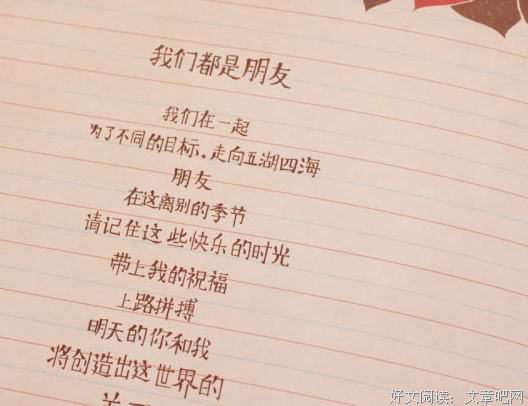 我们都是朋友
我们在一起
为了不同的目标。走向五湖四海
朋友
在这离别的季节
请记住这些快乐的时光
带上我的祝福
上路拼搏
明天的你和我
将创造出这世界的
好文阅读：文章吧网